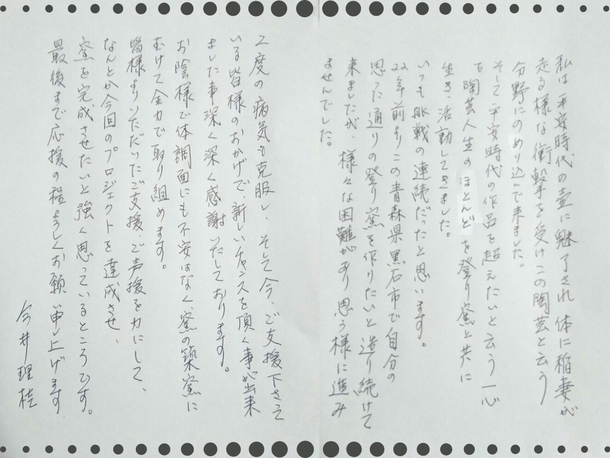 私は平安時代の壷に魅了され 体に稲妻が
走る様な衝撃を受けこの陶芸と云う
分野にのめり込んで来ました。
そして平安時代の作品を超えたいと云う一心
で陶芸人生のほとんどを登り窯と共に
生き、活動してきました。
いつも挑戦の連続だったと思います。
22年前よりこの青森県黒石市で自分の
思った通りの登り窯を作りたいと造り続けて
来ましたが、様々な困難があり思う様に進み
ませんでした。
2度の病気も克服し、そして今、ご支援下さって
いる皆様のおかげで、新しいチャンスを頂く事が出来
ました事、深く深く感謝いたしております。
お陰様で体調面にも不安はなく、窯の築窯に
むけて全力で取り組めます。
皆様よりいただいたご支援、ご声援を力にして、
なんとか今回のプロジェクトを達成させ、
窯を完成させたいと強く思っているところです。
最後まで応援の程よろしくお願い申し上げます。
今井理桂